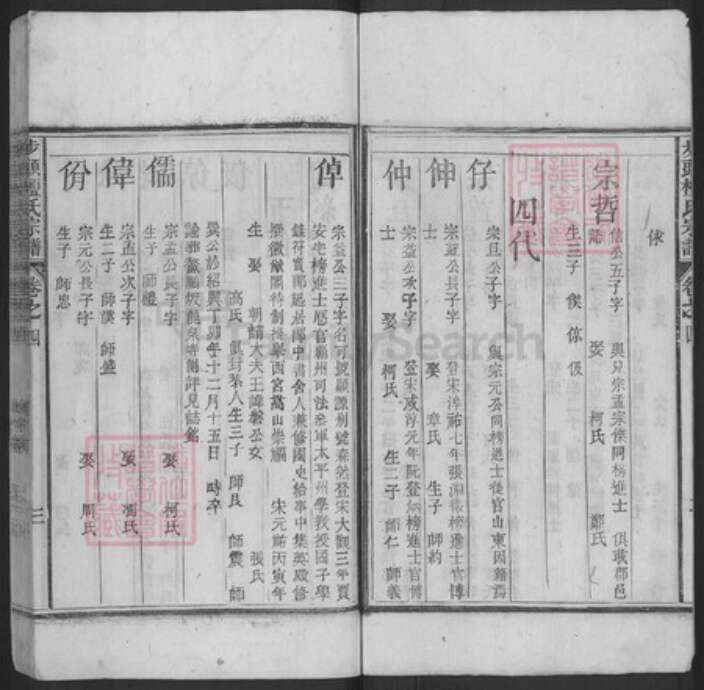 俅
宗哲 信公五子字 與兄宗孟宗傑同榜進士 俱載郡邑
誌 娶 柯氏 鄭氏
生三子 俟 倞 伋
四代
仔 宗旦公子字 與宗元公同榜進士後官山東因籍焉
伸 宗益公長子字 登宋淳祐七年張淵微榜進士官博
士 娶 章氏 生子 師約
仲 宗益公次子字 登宋咸淳元年阮登炳榜進士官博
士 娶 柯氏 生二子 師仁 師義
倬 宗益公三子字 名可 號顧 別號泰然登宋大觀三年賈
安宅榜進士歷官霸州司法參軍太平州學教授國子學
錄符寶郎起居郎中書舍人兼修國史給事中集英殿修
撰徽猷閣待制提舉西宮萬山崇福 宋元祐丙寅年
生 娶 朝請大夫王諱磐公女 張氏
高氏 俱封 人生三子 師艮 師震 師
巽公於紹興丁卯年十二月十五日 時卒
詳見誌銘
儒 宗孟公長子字 娶 柯氏
生子 師禮
偉 宗孟公次子字 娶 馮氏
生二子 師僕 師盛
份 宗元公長子字 娶 周氏
生子 師忠
步頭 氏宗譜 卷之四
三
FamilySearch